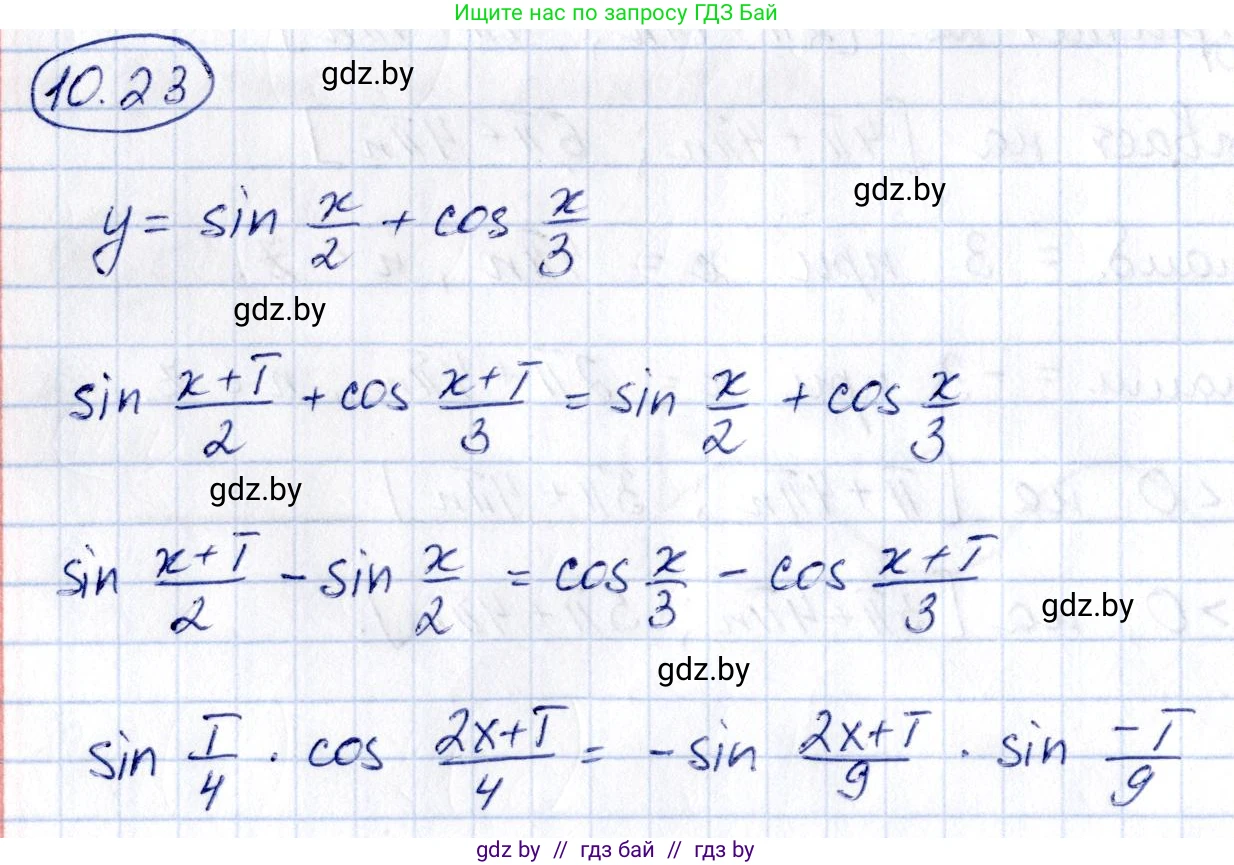 Ищите нас по запросу ГДЗ Бай
10.23
gdz.by
gdz.by
y = sin x/2 + cos x/3
gdz.by
sin (x+T)/2 + cos (x+T)/3 = sin x/2 + cos x/3
gdz.by
sin (x+T)/2 - sin x/2 = cos x/3 - cos (x+T)/3
gdz.by
gdz.by
sin T/4 · cos (2x+T)/4 = -sin (2x+T)/9 · sin (-T)/9
gdz by // гдз бай // гдз by